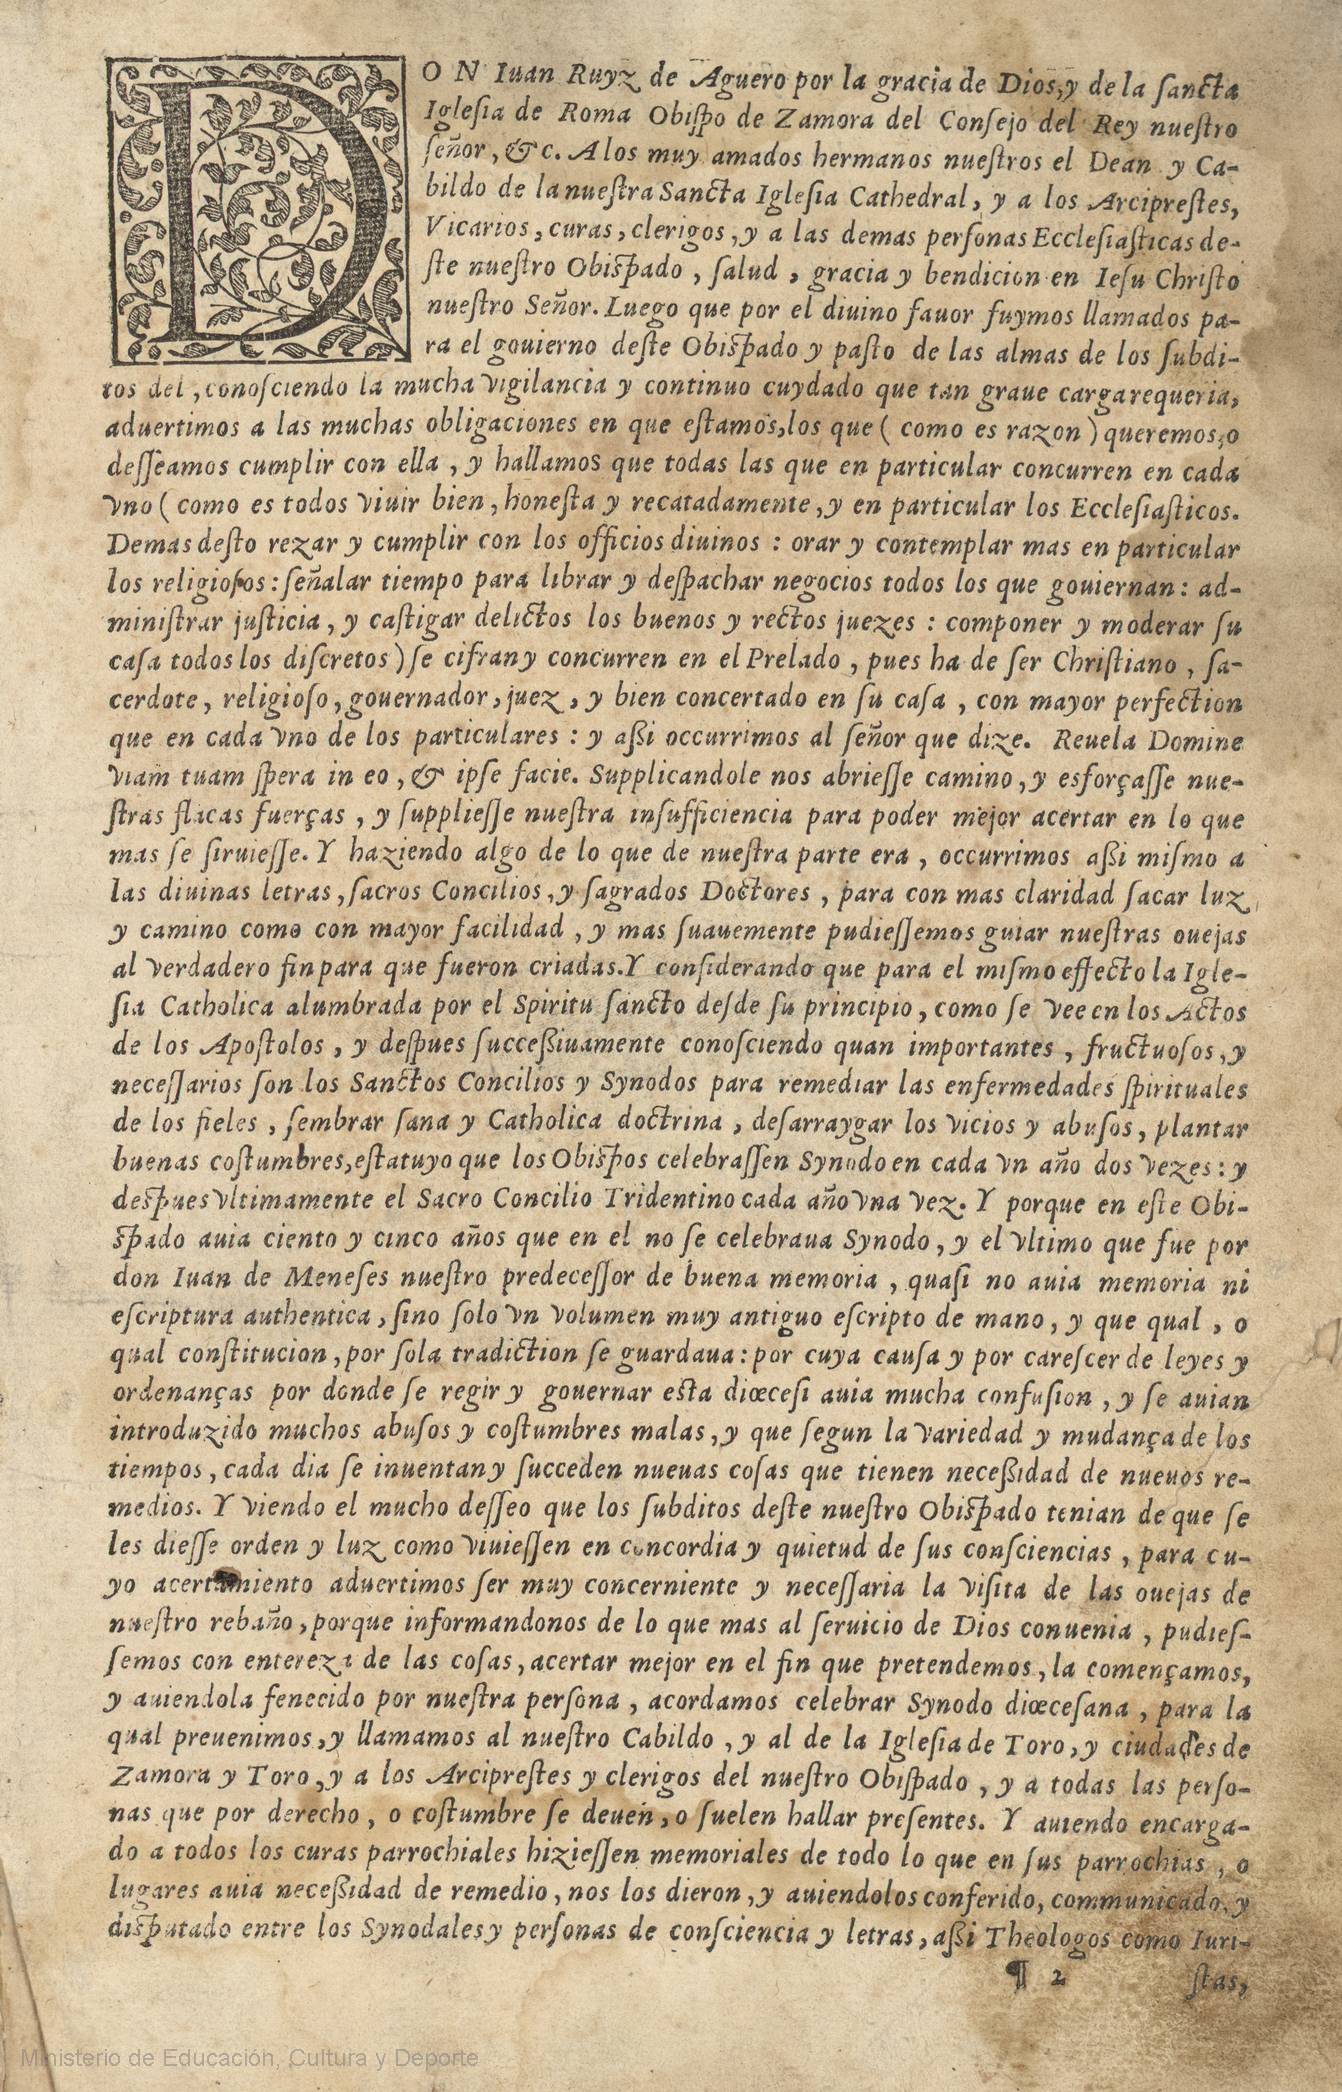 DON Iuan Ruyz de Aguero por la gracia de Dios, y de la sancta
Iglesia de Roma Obispo de Zamora del Consejo del Rey nuestro
señor, &c. A los muy amados hermanos nuestros el Dean y Ca-
bildo de la nuestra Sancta Iglesia Cathedral, y a los Arciprestes,
Vicarios, curas, clerigos, y a las demas personas Ecclesiasticas de-
ste nuestro Obispado, salud, gracia y bendicion en Iesu Christo
nuestro Señor. Luego que por el diuino fauor fuymos llamados pa-
ra el gouierno deste Obispado y pasto de las almas de los subdi-
tos del, conosciendo la mucha vigilancia y continuo cuydado que tan graue carga requeria,
aduertimos a las muchas obligaciones en que estamos, los que (como es razon) queremos, o
desseamos cumplir con ella, y hallamos que todas las que en particular concurren en cada
vno (como es todos viuir bien, honesta y recatadamente, y en particular los Ecclesiasticos.
Demas desto rezar y cumplir con los officios diuinos: orar y contemplar mas en particular
los religiosos: señalar tiempo para librar y despachar negocios todos los que gouiernan: ad-
ministrar justicia, y castigar delictos los buenos y rectos juezes: componer y moderar su
casa todos los discretos) se cifran y concurren en el Prelado, pues ha de ser Christiano, sa-
cerdote, religioso, gouernador, juez, y bien concertado en su casa, con mayor perfection
que en cada vno de los particulares: y assi occurrimos al señor que dize. Reuela Domine
viam tuam spera in eo, & ipse facie. Supplicandole nos abriesse camino, y esforçasse nue-
stras flacas fuerças, y suppliesse nuestra insufficiencia para poder mejor acertar en lo que
mas se siruiesse. Y haziendo algo de lo que de nuestra parte era, occurrimos assi mismo a
las diuinas letras, sacros Concilios, y sagrados Doctores, para con mas claridad sacar luz
y camino como con mayor facilidad, y mas suauemente pudiessemos guiar nuestras ouejas
al verdadero fin para que fueron criadas. Y considerando que para el mismo effecto la Igle-
sia Catholica alumbrada por el Spiritu sancto desde su principio, como se vee en los Actos
de los Apostolos, y despues successiuamente conosciendo quan importantes, fructuosos, y
necessarios son los Sanctos Concilios y Synodos para remediar las enfermedades spirituales
de los fieles, sembrar sana y Catholica doctrina, desarraygar los vicios y abusos, plantar
buenas costumbres, estatuyo que los Obispos celebrassen Synodo en cada vn año dos vezes: y
despues vltimamente el Sacro Concilio Tridentino cada año vna vez. Y porque en este Obi-
spado auia ciento y cinco años que en el no se celebraua Synodo, y el vltimo que fue por
don Iuan de Meneses nuestro predecessor de buena memoria, quasi no auia memoria ni
escriptura authentica, sino solo vn volumen muy antiguo escripto de mano, y que qual, o
qual constitucion, por sola tradiction se guardaua: por cuya causa y por carescer de leyes y
ordenanças por donde se regir y gouernar esta diœcesi auia mucha confusion, y se auian
introduzido muchos abusos y costumbres malas, y que segun la variedad y mudança de los
tiempos, cada dia se inuentan y succeden nueuas cosas que tienen necessidad de nueuos re-
medios. Y viendo el mucho desseo que los subditos deste nuestro Obispado tenian de que se
les diesse orden y luz como viuiessen en concordia y quietud de sus consciencias, para cu-
yo acertamiento aduertimos ser muy concerniente y necessaria la visita de las ouejas de
nuestro rebaño, porque informandonos de lo que mas al seruicio de Dios conuenia, pudies-
semos con entereza de las cosas, acertar mejor en el fin que pretendemos, la començamos,
y auiendola fenecido por nuestra persona, acordamos celebrar Synodo diœcesana, para la
qual preuenimos, y llamamos al nuestro Cabildo, y al de la Iglesia de Toro, y ciudades de
Zamora y Toro, y a los Arciprestes y clerigos del nuestro Obispado, y a todas las perso-
nas que por derecho, o costumbre se deuen, o suelen hallar presentes. Y auiendo encarga-
do a todos los curas parrochiales hiziessen memoriales de todo lo que en sus parrochias, o
lugares auia necessidad de remedio, nos los dieron, y auiendolos conferido, communicado, y
disputado entre los Synodales y personas de consciencia y letras, assi Theologos como Iuri-
¶ 2 stas,
Ministerio de Educación, Cultura y Deporte